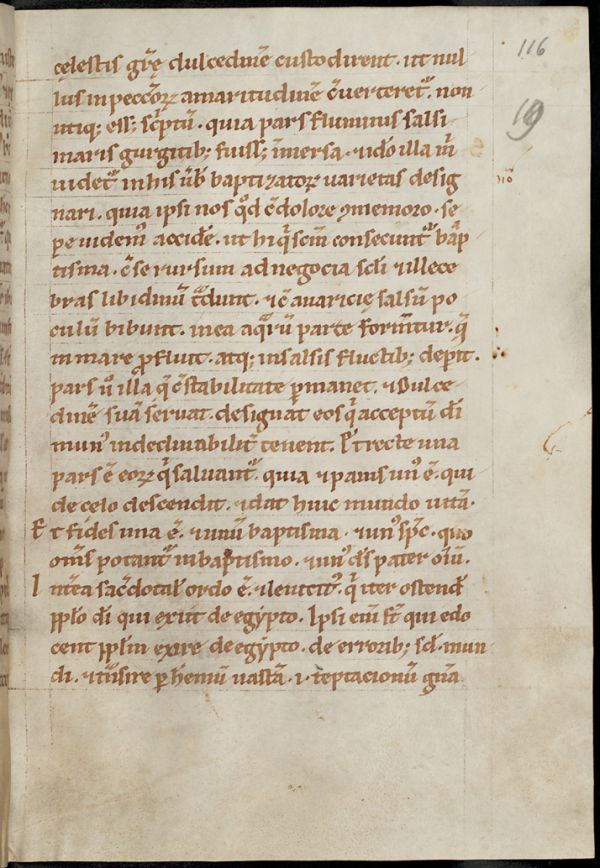 116
19
cęlestis gr̄ę dulcedinē custodirent. ut nul
lus in peccōꝝ amaritudinē c̄uerteret᷑. non
utiq; eēt; sc̄ptū. quia pars fluminis salsi
maris gurgitib; fuiss; īmersa. ⁊ ido illa m̄
uidet᷑ in his ūb baptizatoꝝ uarietas desig
nari. quia ipsi nos qd̄ c̄ dolore ꝯmemoro. se
pe uidemꝰ accidē. ut hi q̄ scīm consecunt᷑ bap̄
tisma. c̄ se rursum ad negocia scl̄i ⁊ illece
bras libidinū t̄dunt. ⁊ c̄ auaricię salsū po
culū bibunt. in ea aqͣrū parte form̄tur. q̄
in mare ꝓfluit. atq; in salsis fluctib; dep̄it.
pars ū illa q̄ c̄ stabilitate p̄manet. ⁊ dulce
dinē suā seruat. designat eos q̄ acceptū dī
munꝰ indeclinabilit̄ tenent. Et recte una
pars ē eoꝝ q̄ saluant᷑. quia ⁊ panis unꝰ ē. qui
de celo descendit. ⁊ dat huic mundo uitā.
Et fides una ē. ⁊ unū baptisma. ⁊ unꝰ sp̄c. quo
om̄s potant᷑ in baptismo. ⁊ unꝰ d̄s pater oīū.
Int̄ea sac̄dotal᷒ ordo ē. ⁊ leuiticꝰ. q̄ iter ostend̄
ppl̄o dī qui exiit de egẏpto. Ipsi eiḿ st̄ qui edo
cent ppl̄m exire de egẏpto. de errorib; sc̄l mun
di. ⁊ t̄nsire p̄ heremū uastā. i. tēptacionū gn̄a